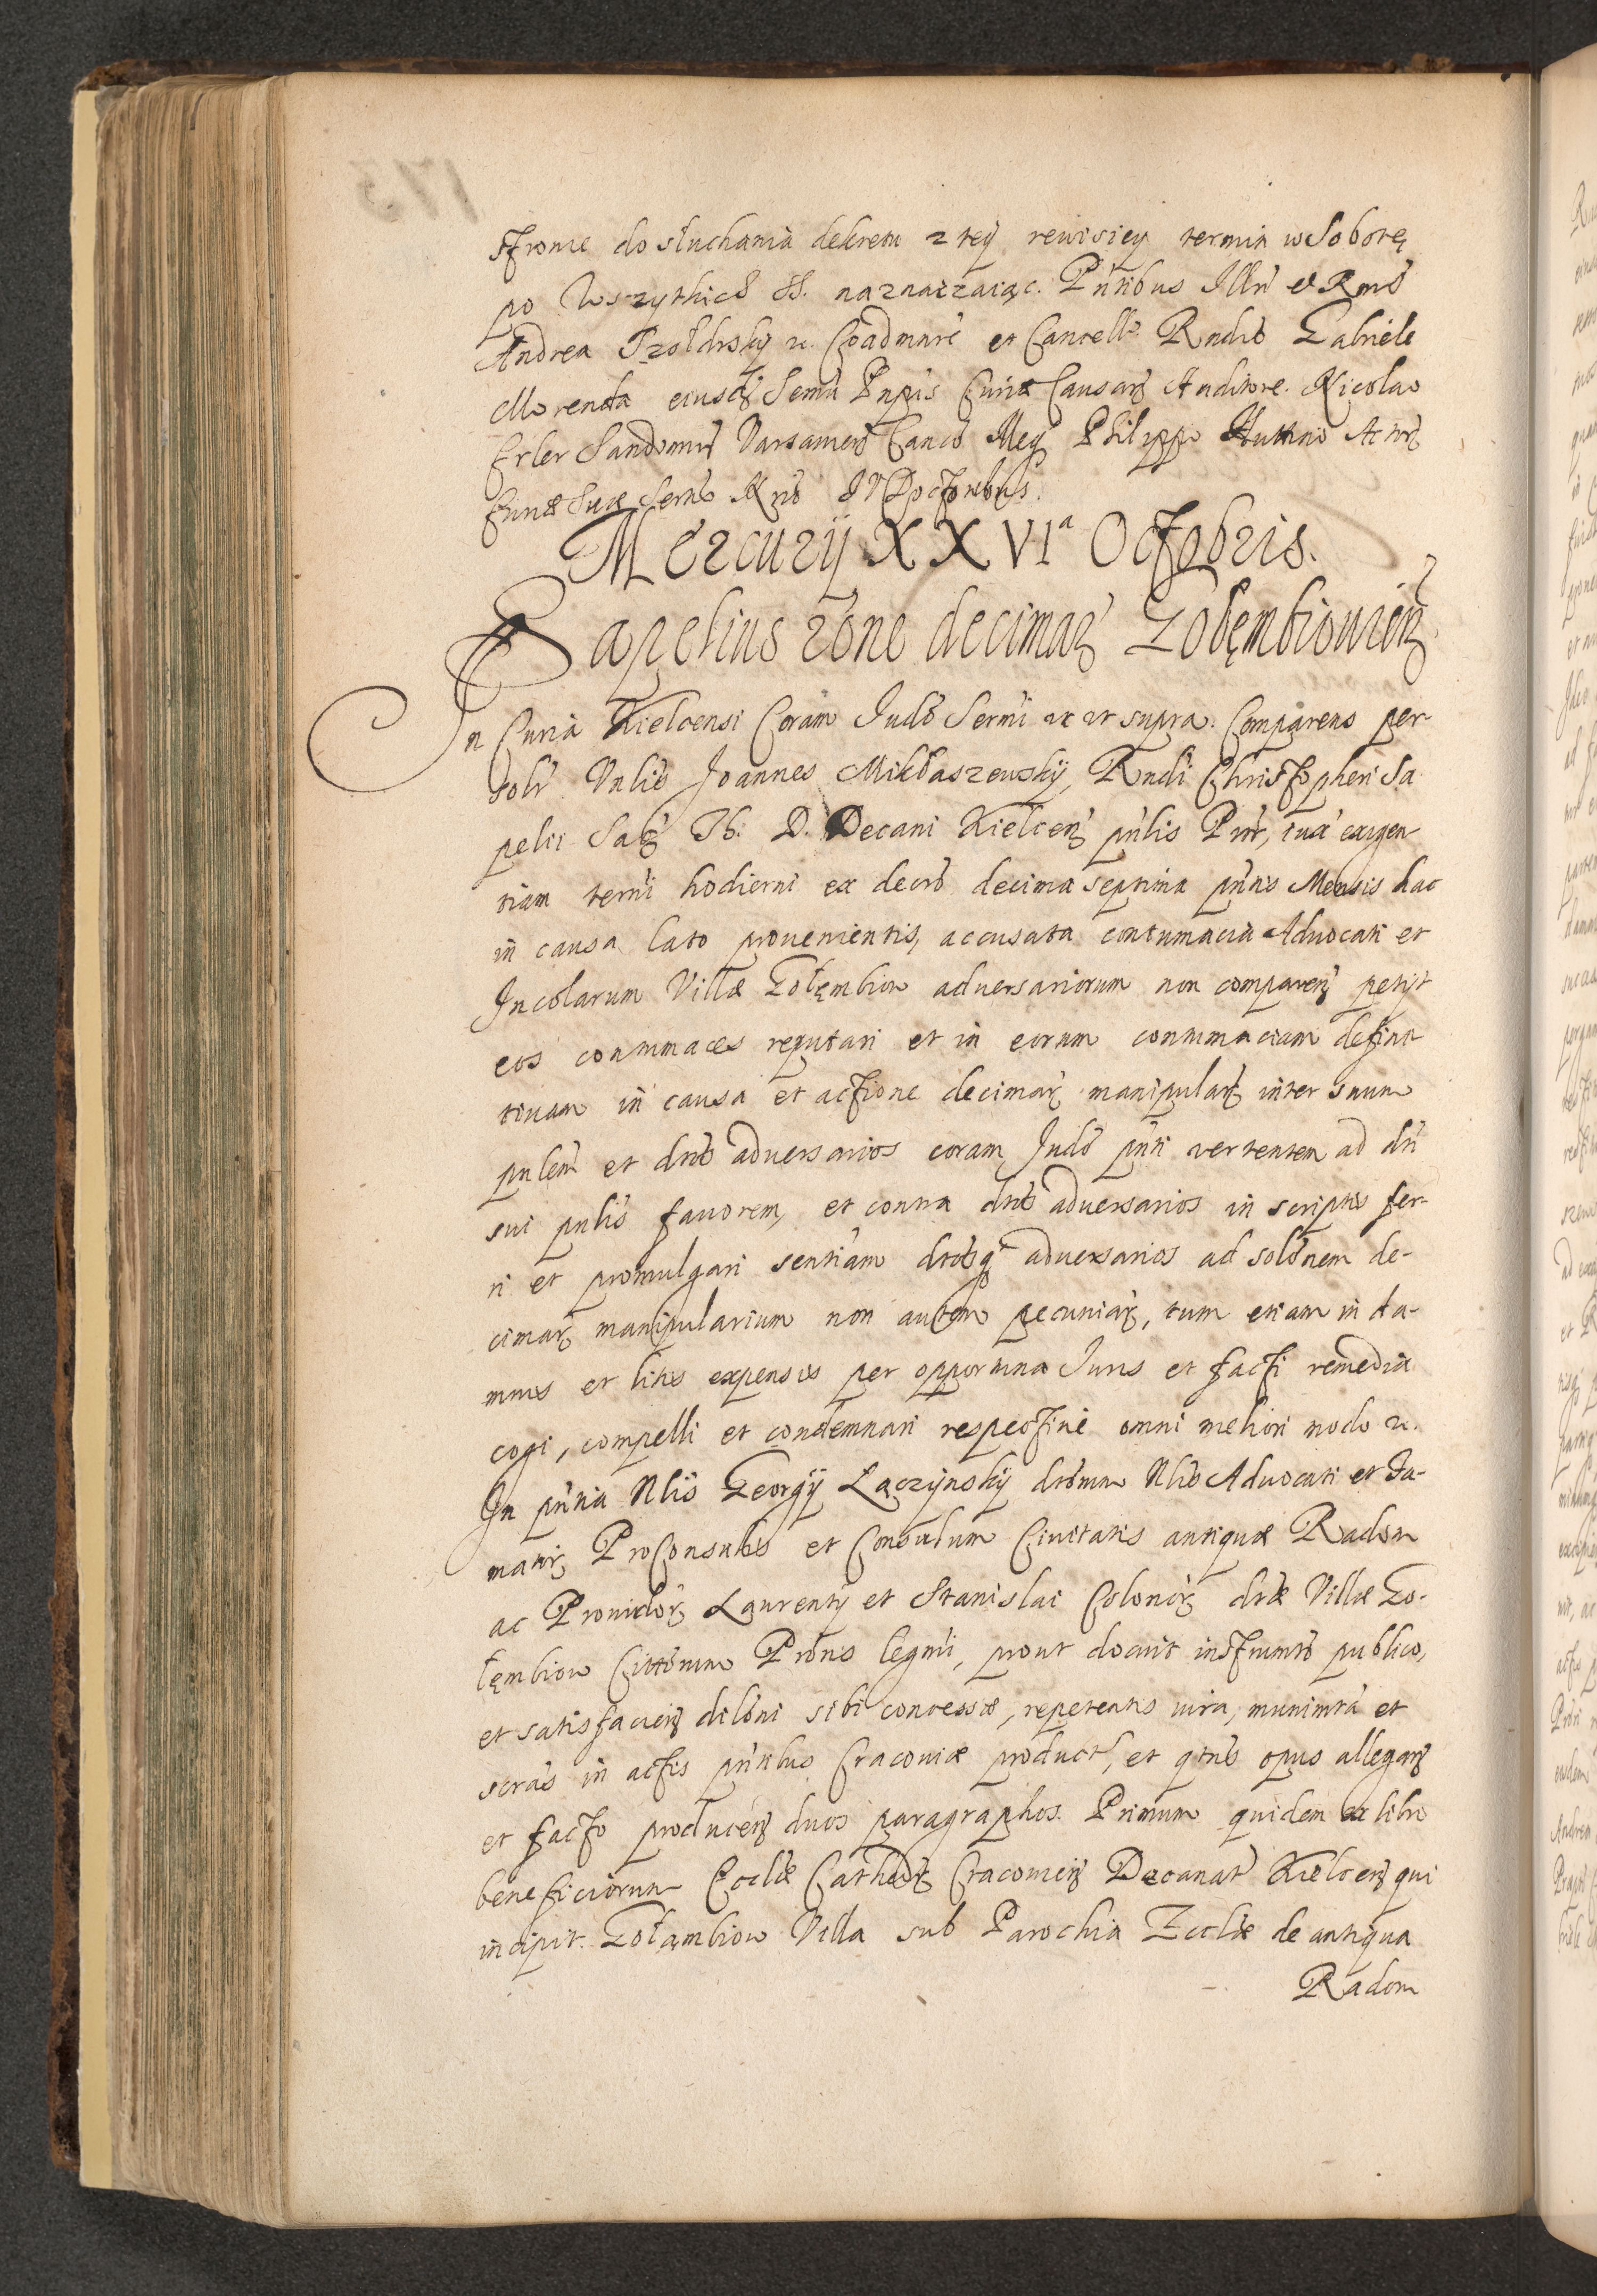 strome do słuchania dekretu z tey rewisiey termin w Sobotę
po Wszythics SS. naznaczaiąc. Pntibus Illri et Rmo
Andrea Trzebicky &c. Coadmarc et Cancell. Rndis Gabriele
Morenda eiusdem Sermi Pnpis Curiæ Causarum Auditore. Nicolao
Erler Sandomir Varsavien Canco Meg Philippo Huttini Actor
Curiæ Suæ Sermo Nris D Doctoribus.
Mercurij XXVIa Octobris.
Sapelius rône decimar Gołęmbiowien
In Curia Kielcensi Coram Judo Sermi &c ut supra. Comparens per-
solr Nulis Joannes Mikłaszewsky, Rndi Christopheri Sa
pelii Sac Th. D. Decani Kielcen pnlis Pnr, iuxa exigen
tiam termi hodierni ex decro decima septima pntis Mensis hac
in causa lato provenientis, accusata contumacia Advocati et
Incolarum Villæ Gołęmbiow adversariorum non comparen petijt
eos contumaces reputari et in eorum contumaciam defini
tivam in causa et actione decimar manipular inter suum
pnlem et dros adversarios coram Judo pnti vertentem ad dri
sui pnlis favorem, et contra dros adversarios in scriptis fer-
ri et promulgari sentiam drosq adversarios ad solônem de-
cimar manipularium non autem pecuniar, tum etiam in da-
mnis et litis expensis per opportuna Juris et facti remedia
cogi, compelli et condemnari respective omni meliori modo &c.
In pntia Nlis Georgij Łączynsky drorum Nlis Advocati et Fa-
mator ProConsulis et Consulum Civitatis antiquæ Radom
ac Providor Laurentij et Stanislai Colonor dræ Villæ Go-
łęmbiow Cittorum Prôris legmi, prout docuit instrumto publico,
et satisfacien dilôni sibi concessæ, repetentis iura, munimta et
scras in actis pntibus Cracoviæ product, et qtns opus allegan
et facto producen duos paragraphos. Primum quidem ex libro
beneficiorum Eccliæ Cathedr Cracovien Decanat Kielcen qui
incipit. Gołambiow Villa sub Parochia Eccliæ de antiqua
Radom